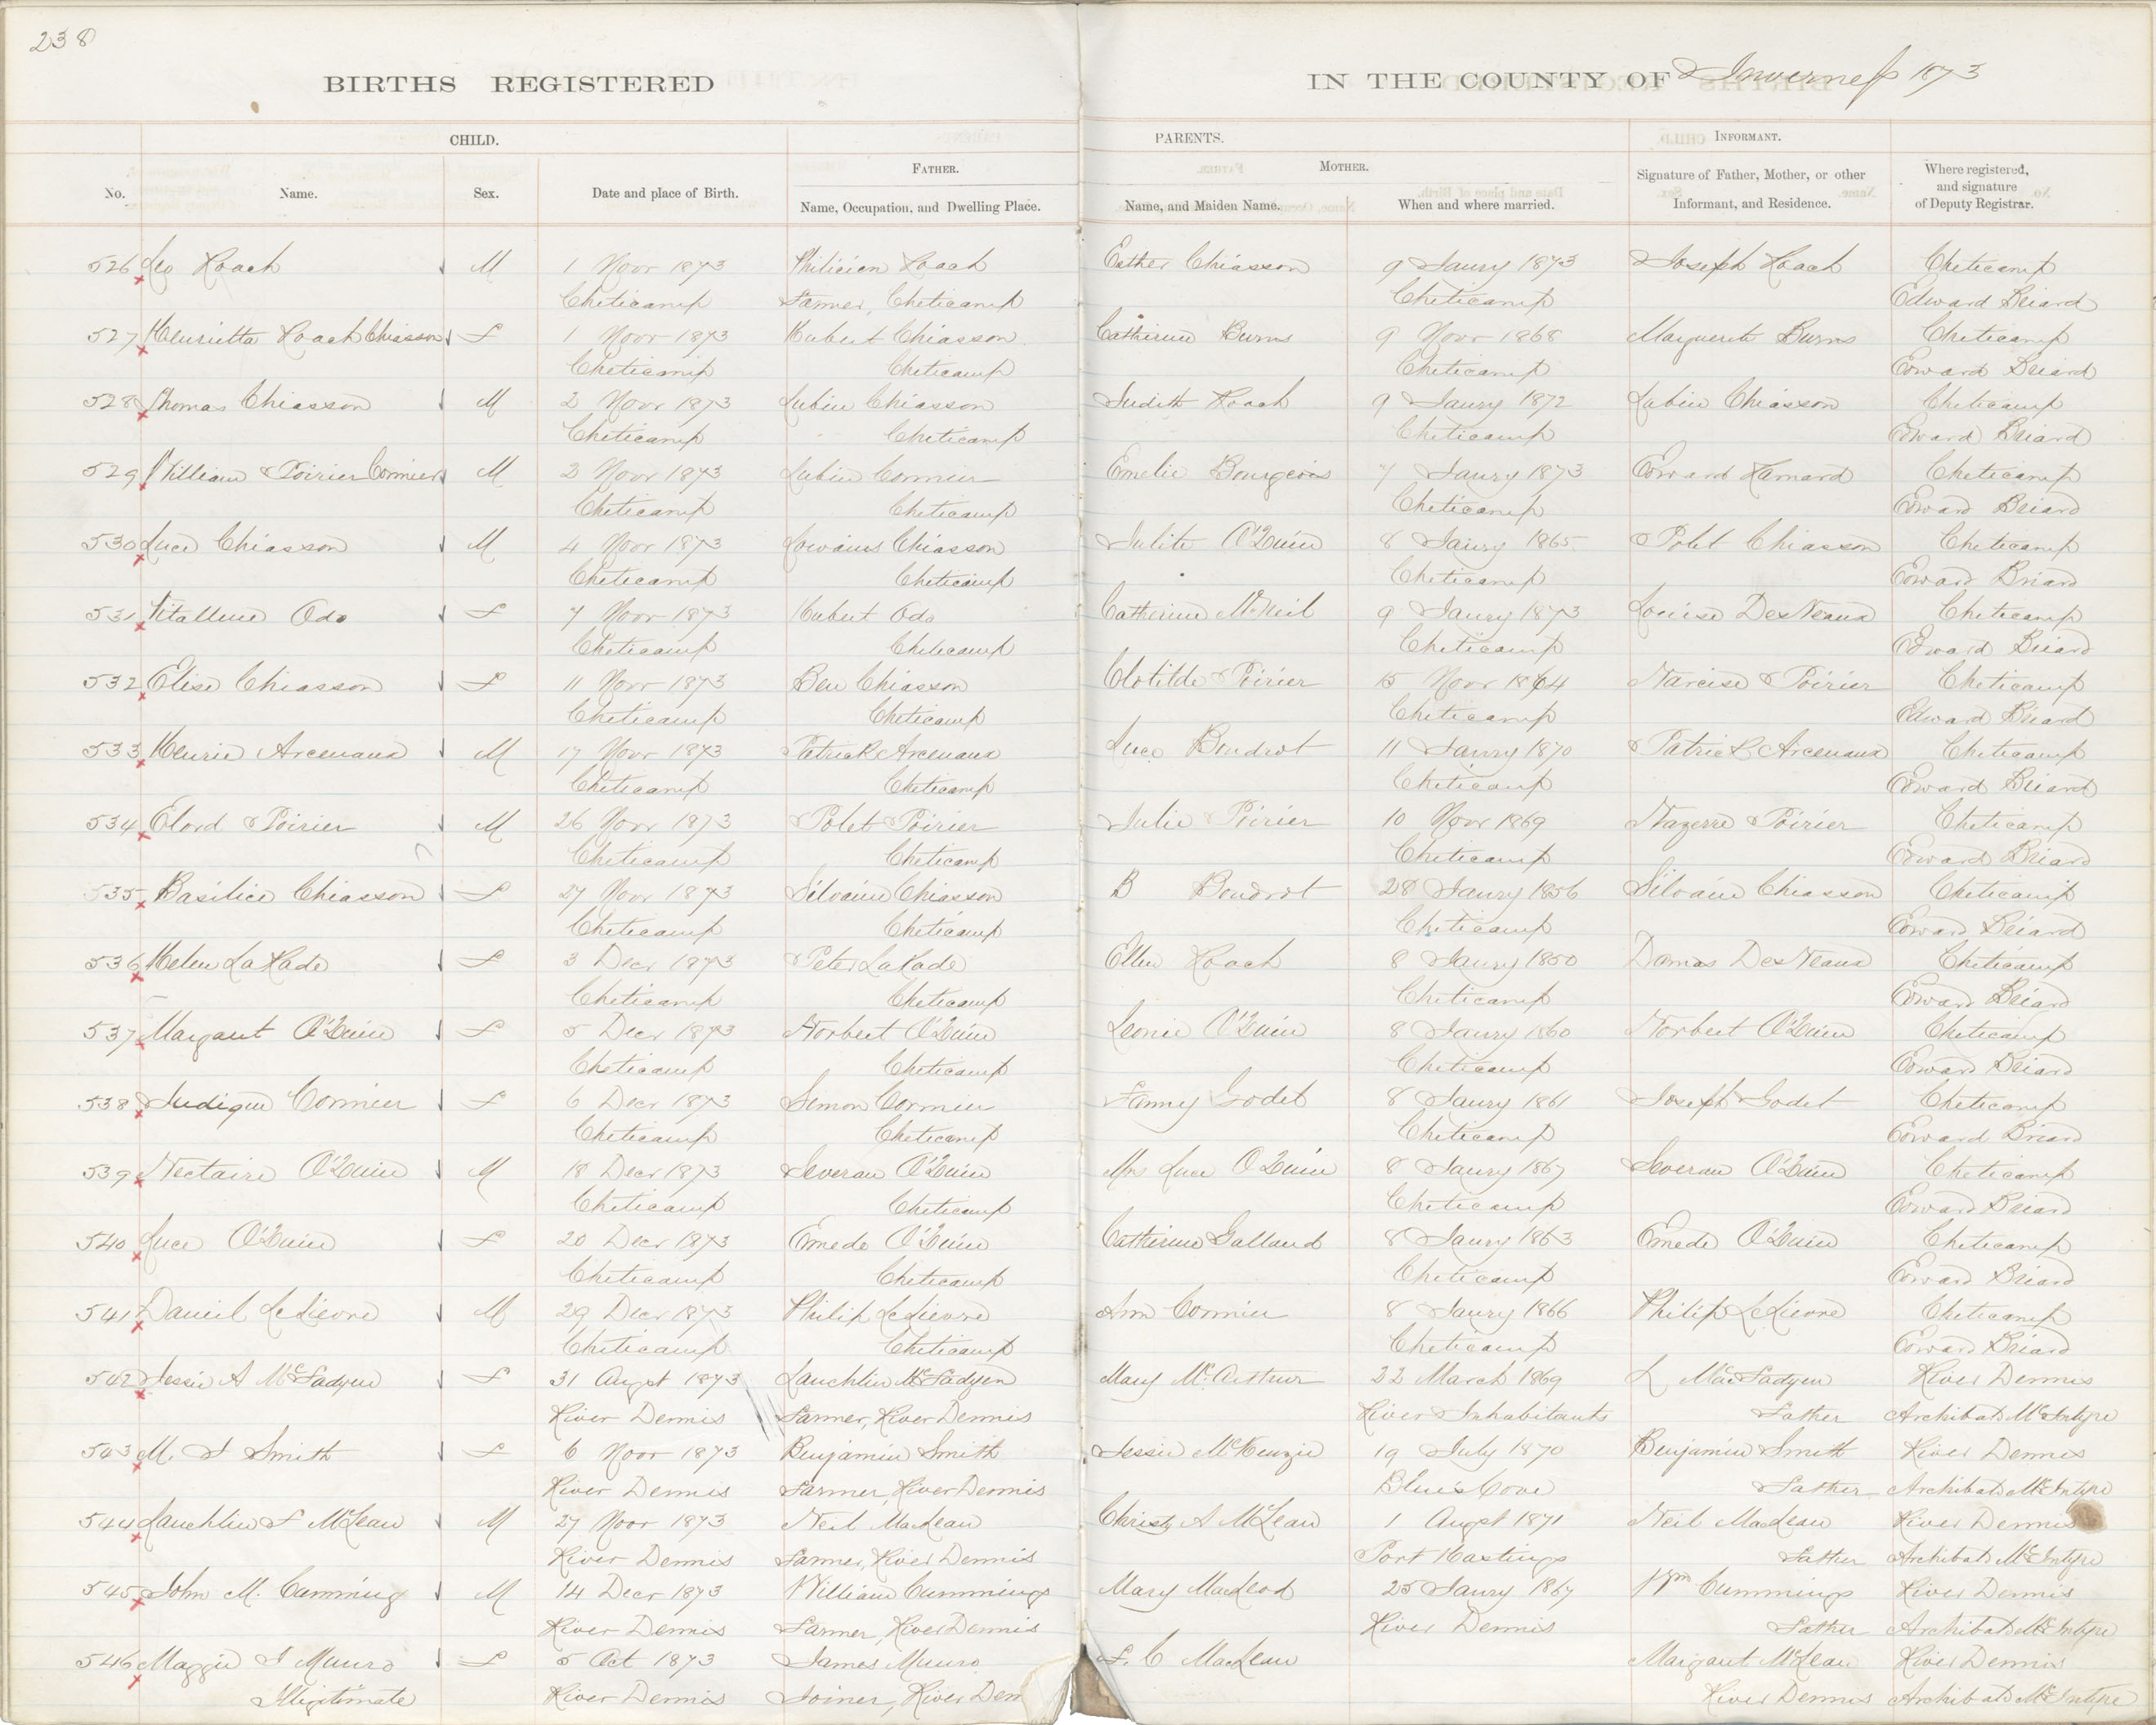 238
BIRTHS REGISTERED IN THE COUNTY OF Inverness 1873
CHILD. PARENTS. INFORMANT.
FATHER. MOTHER.
No. Name. Sex. Date and place of Birth. Name, Occupation, and Dwelling Place. Name, and Maiden Name. When and where married. Signature of Father, Mother, or other Informant, and Residence. Where registered, and signature of Deputy Registrar.
526 Leo Roach M 1 Novr 1873 Philicien Roach Esther Chiasson 9 Janry 1873 Joseph Roach Cheticamp
Cheticamp Farmer, Cheticamp Cheticamp Edward Briard
527 Henrietta Roach Chiasson F 1 Novr 1873 Hubert Chiasson Catherine Burns 9 Novr 1868 Marguerite Burns Cheticamp
Cheticamp Cheticamp Cheticamp Edward Briard
528 Thomas Chiasson M 2 Novr 1873 Lubin Chiasson Judith Roach 9 Janry 1872 Lubin Chiasson Cheticamp
Cheticamp Cheticamp Cheticamp Edward Briard
529 William Poirier Cormier M 2 Novr 1873 Lubin Cormier Emelie Bourgeois 7 Janry 1873 Edward Cheticamp
Cheticamp Cheticamp Cheticamp Edward Briard
530 Luce Chiasson M 4 Novr 1873 Chiasson Julite O'Quin 8 Janry 1865 Polet Chiasson Cheticamp
Cheticamp Cheticamp Cheticamp Edward Briard
531 Vitalline Odo F 7 Novr 1873 Hubert Odo Catherine McNeil 9 Janry 1873 Louise DesVeaux Cheticamp
Cheticamp Cheticamp Cheticamp Edward Briard
532 Elise Chiasson F 11 Novr 1873 Ben Chiasson Clotilde Poirier 15 Novr 1864 Narcise Poirier Cheticamp
Cheticamp Cheticamp Cheticamp Edward Briard
533 Henrie Arcenaux M 17 Novr 1873 Patrick Arcenaux Luce Boudrot 11 Janry 1870 Patrick Arcenaux Cheticamp
Cheticamp Cheticamp Cheticamp Edward Briard
534 Elord Poirier M 26 Novr 1873 Polet Poirier Julie Poirier 10 Novr 1869 Nazerre Poirier Cheticamp
Cheticamp Cheticamp Cheticamp Edward Briard
535 Basilice Chiasson F 27 Novr 1873 Silvain Chiasson B Boudrot 28 Janry 1856 Silvain Chiasson Cheticamp
Cheticamp Cheticamp Cheticamp Edward Briard
536 Helen LaRade F 3 Decr 1873 Peter LaRade Ellen Roach 8 Janry 1850 Damas DesVeaux Cheticamp
Cheticamp Cheticamp Cheticamp Edward Briard
537 Margaret O'Quin F 5 Decr 1873 Norbert O'Quin Leonie O'Quin 8 Janry 1860 Norbert O'Quin Cheticamp
Cheticamp Cheticamp Cheticamp Edward Briard
538 Judique Cormier F 6 Decr 1873 Simon Cormier Fanny Godet 8 Janry 1861 Joseph Godet Cheticamp
Cheticamp Cheticamp Cheticamp Edward Briard
539 Nectaire O'Quin M 18 Decr 1873 Severan O'Quin Mrs Luce O'Quin 8 Janry 1867 Severan O'Quin Cheticamp
Cheticamp Cheticamp Cheticamp Edward Briard
540 Luce O'Quin F 20 Decr 1873 Emede O'Quin Catherine Galland 8 Janry 1863 Emede O'Quin Cheticamp
Cheticamp Cheticamp Cheticamp Edward Briard
541 Daniel LeLievre M 29 Decr 1873 Philip LeLievre Ann Cormier 8 Janry 1866 Philip LeLievre Cheticamp
Cheticamp Cheticamp Cheticamp Edward Briard
542 Jessie A McFadyen F 31 Augst 1873 Lauchlin McFadyen Mary McArthur 22 March 1869 L MacFadyen River Dennis
River Dennis Farmer, River Dennis River Inhabitants Father Archibald McIntyre
543 M. J Smith F 6 Novr 1873 Benjamin Smith Jessie McKenzie 19 July 1870 Benjamin Smith River Dennis
River Dennis Farmer, River Dennis Blues Cove Father Archibald McIntyre
544 Lauchlin F McLean M 27 Novr 1873 Neil MacLean Christy A McLean 1 Augst 1871 Neil MacLean River Dennis
River Dennis Farmer, River Dennis Port Hastings Father Archibald McIntyre
545 John M. Cumming M 14 Decr 1873 William Cummings Mary MacLeod 25 Janry 1867 Wm Cummings River Dennis
River Dennis Farmer, River Dennis River Dennis Father Archibald McIntyre
546 Maggie J Munro F 5 Oct 1873 James Munro F. C MacLean Margaret McLean River Dennis
Illigitimate River Dennis Joiner, River Den River Dennis Archibald McIntyre